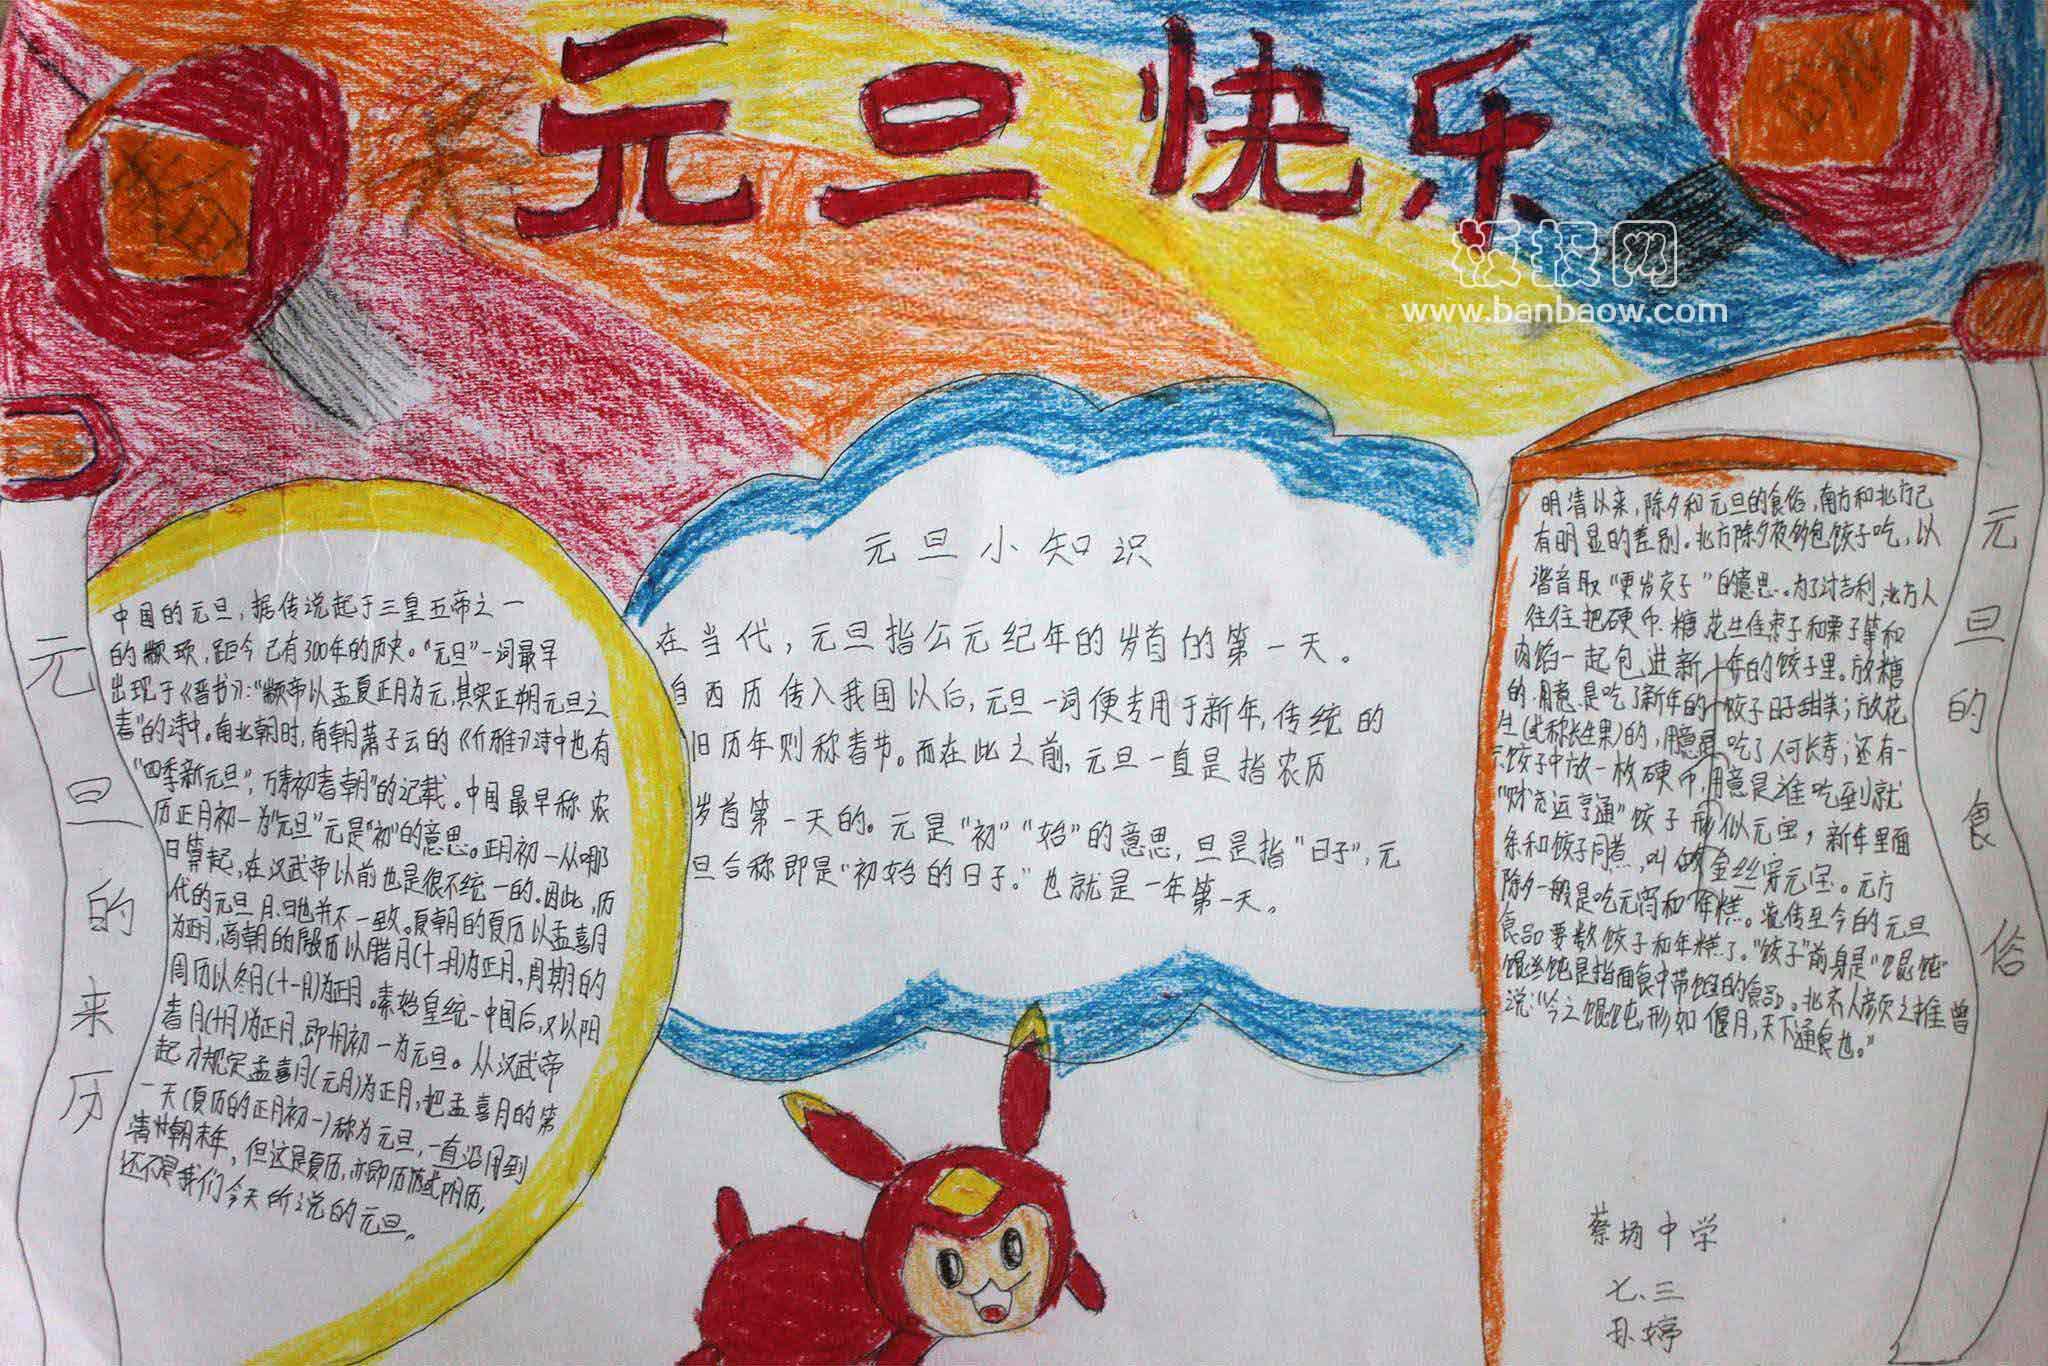 元旦快乐
板报网
www.banbaow.com
元旦的来历
中国的元旦，据传说起于三皇五帝之一
的颛顼，距今已有300年的历史。“元旦”一词最早
出现于《晋书》：“颛帝以孟夏正月为元，其实正朔元旦之
春”的诗中。南北朝时，南朝萧子云的《介雅》诗中也有
“四季新元旦，万寿初春朝”的记载。中国最早称农
历正月初一为“元旦”元是“初”的意思。正月初一从哪
日算起，在汉武帝以前也是很不统一的。因此，历
代的元旦月、日也并不一致。夏朝的夏历以孟喜月
为正月，商朝的殷历以腊月(十二月)为正月，周期的
周历以冬月(十一月)为正月。秦始皇统一中国后，又以阳
春月(十月)为正月，即十月初一为元旦。从汉武帝
起才规定孟喜月(元月)为正月，把孟喜月的第
一天(夏历的正月初一)称为元旦，一直沿用到
清朝末年，但这是夏历，亦即历或阴历，
还不是我们今天所说的元旦。
元旦小知识
在当代，元旦指公元纪年的岁首的第一天。
自西历传入我国以后，元旦一词便专用于新年，传统的
旧历年则称春节。而在此之前，元旦一直是指农历
岁首第一天的。元是“初”“始”的意思，旦是指“日子”，元
旦合称即是“初始的日子。”也就是一年第一天。
元旦的食俗
明清以来，除夕和元旦的食俗，南方和北方已
有明显的差别。北方除夕夜的包饺子吃，以
谐音取“更岁交子”的意思。为了讨吉利，北方人
往往把硬币、糖、花生、枣子和栗子等和
肉馅一起包进新年的饺子里。放糖
的，用意是吃了新年的饺子日子甜美；放花
生(或称长生果)的，用意是吃了人可长寿；还有一
饺子中放一枚硬币，用意是谁吃到就
“财运亨通”饺子形似元宝，新年里面
条和饺子同煮，叫做金丝穿元宝。元方
除夕一般是吃元宵和年糕。流传至今的元旦
食品要数饺子和年糕了。“饺子”前身是“馄饨”
馄饨是指面食中带馅的食品。北齐人颜之推曾
说“今之馄饨，形如偃月，天下通食也。”
蔡坊中学
七、三
孙婷